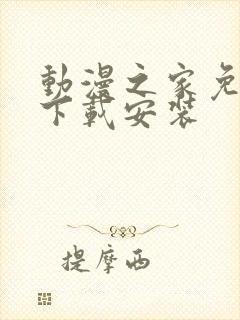 動漫之家免
下載安裝
提摩西